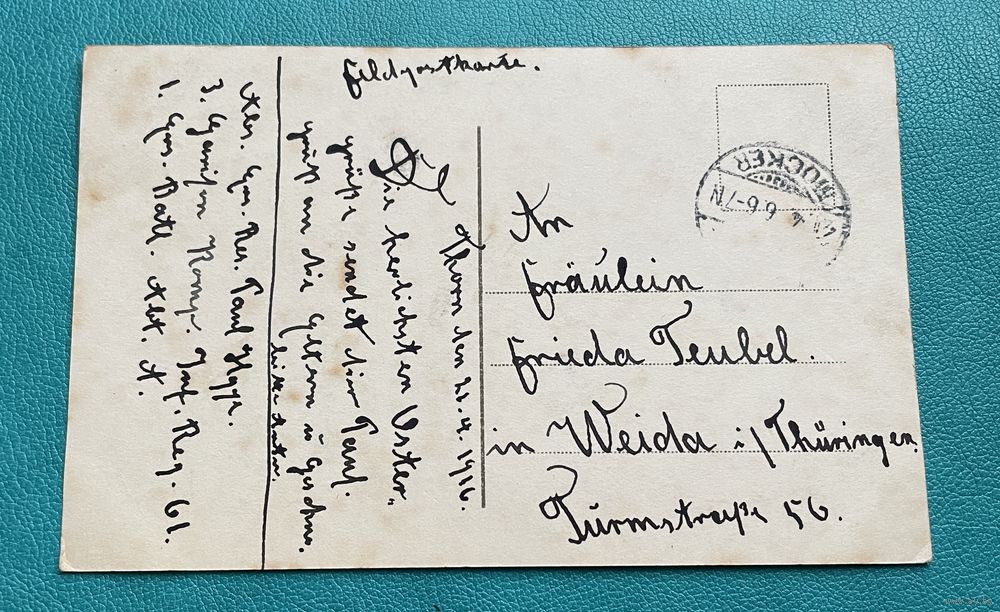 Feldpostkarte.
MOCKER
6.6-7N
An
Fräulein
Frieda Teubel.
in Weida i/Thüringen.
Turmstraße 56.
Thorn den 21.4.1916.
Die herlichsten Oster„
grüße sendet dir Paul.
gruß an die Eltern u Geschw.
bitte Antw.
Abs. Ers. Res. Paul
3. Garnison Komp. Inf. Reg. 61.
1. Ers. Batl. Abt. A.